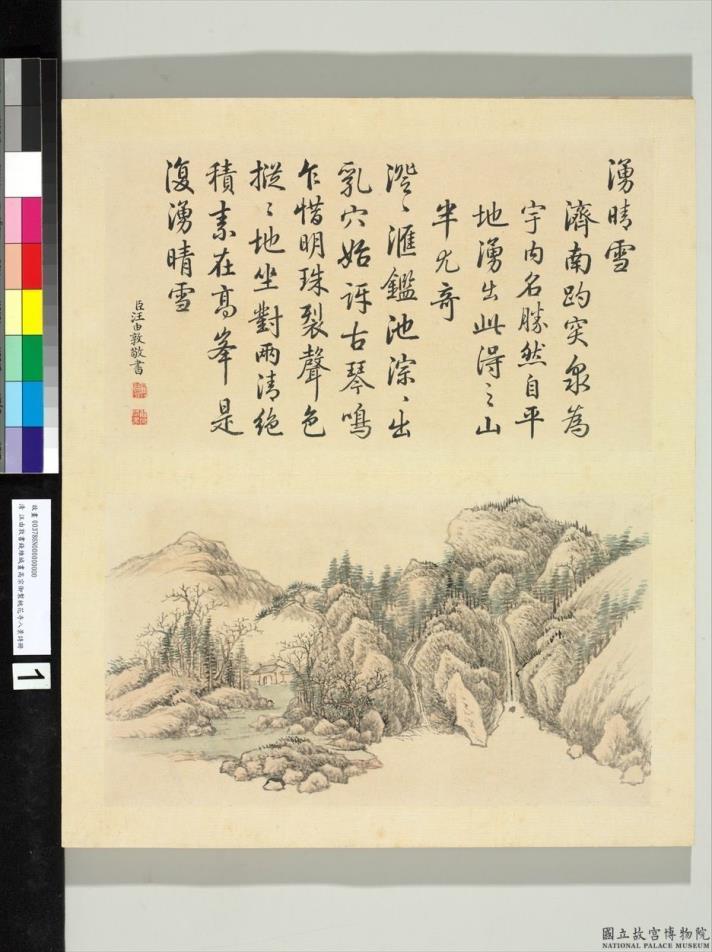 湧晴雪
濟南趵突泉為
宇內名勝然自平
地湧出此得之山
半尤奇
澄〻滙鑑池淙〻出
乳穴始訝古琴鳴
乍惜明珠裂聲色
摐〻地坐對兩清絶
積素在髙峯是
復湧晴雪
臣汪由敦敬書
故畫 003786N000000000
清 汪由敦書錢維城畫高宗御製桃花寺八景詩冊
1
國立故宮博物院
NATIONAL PALACE MUSEUM